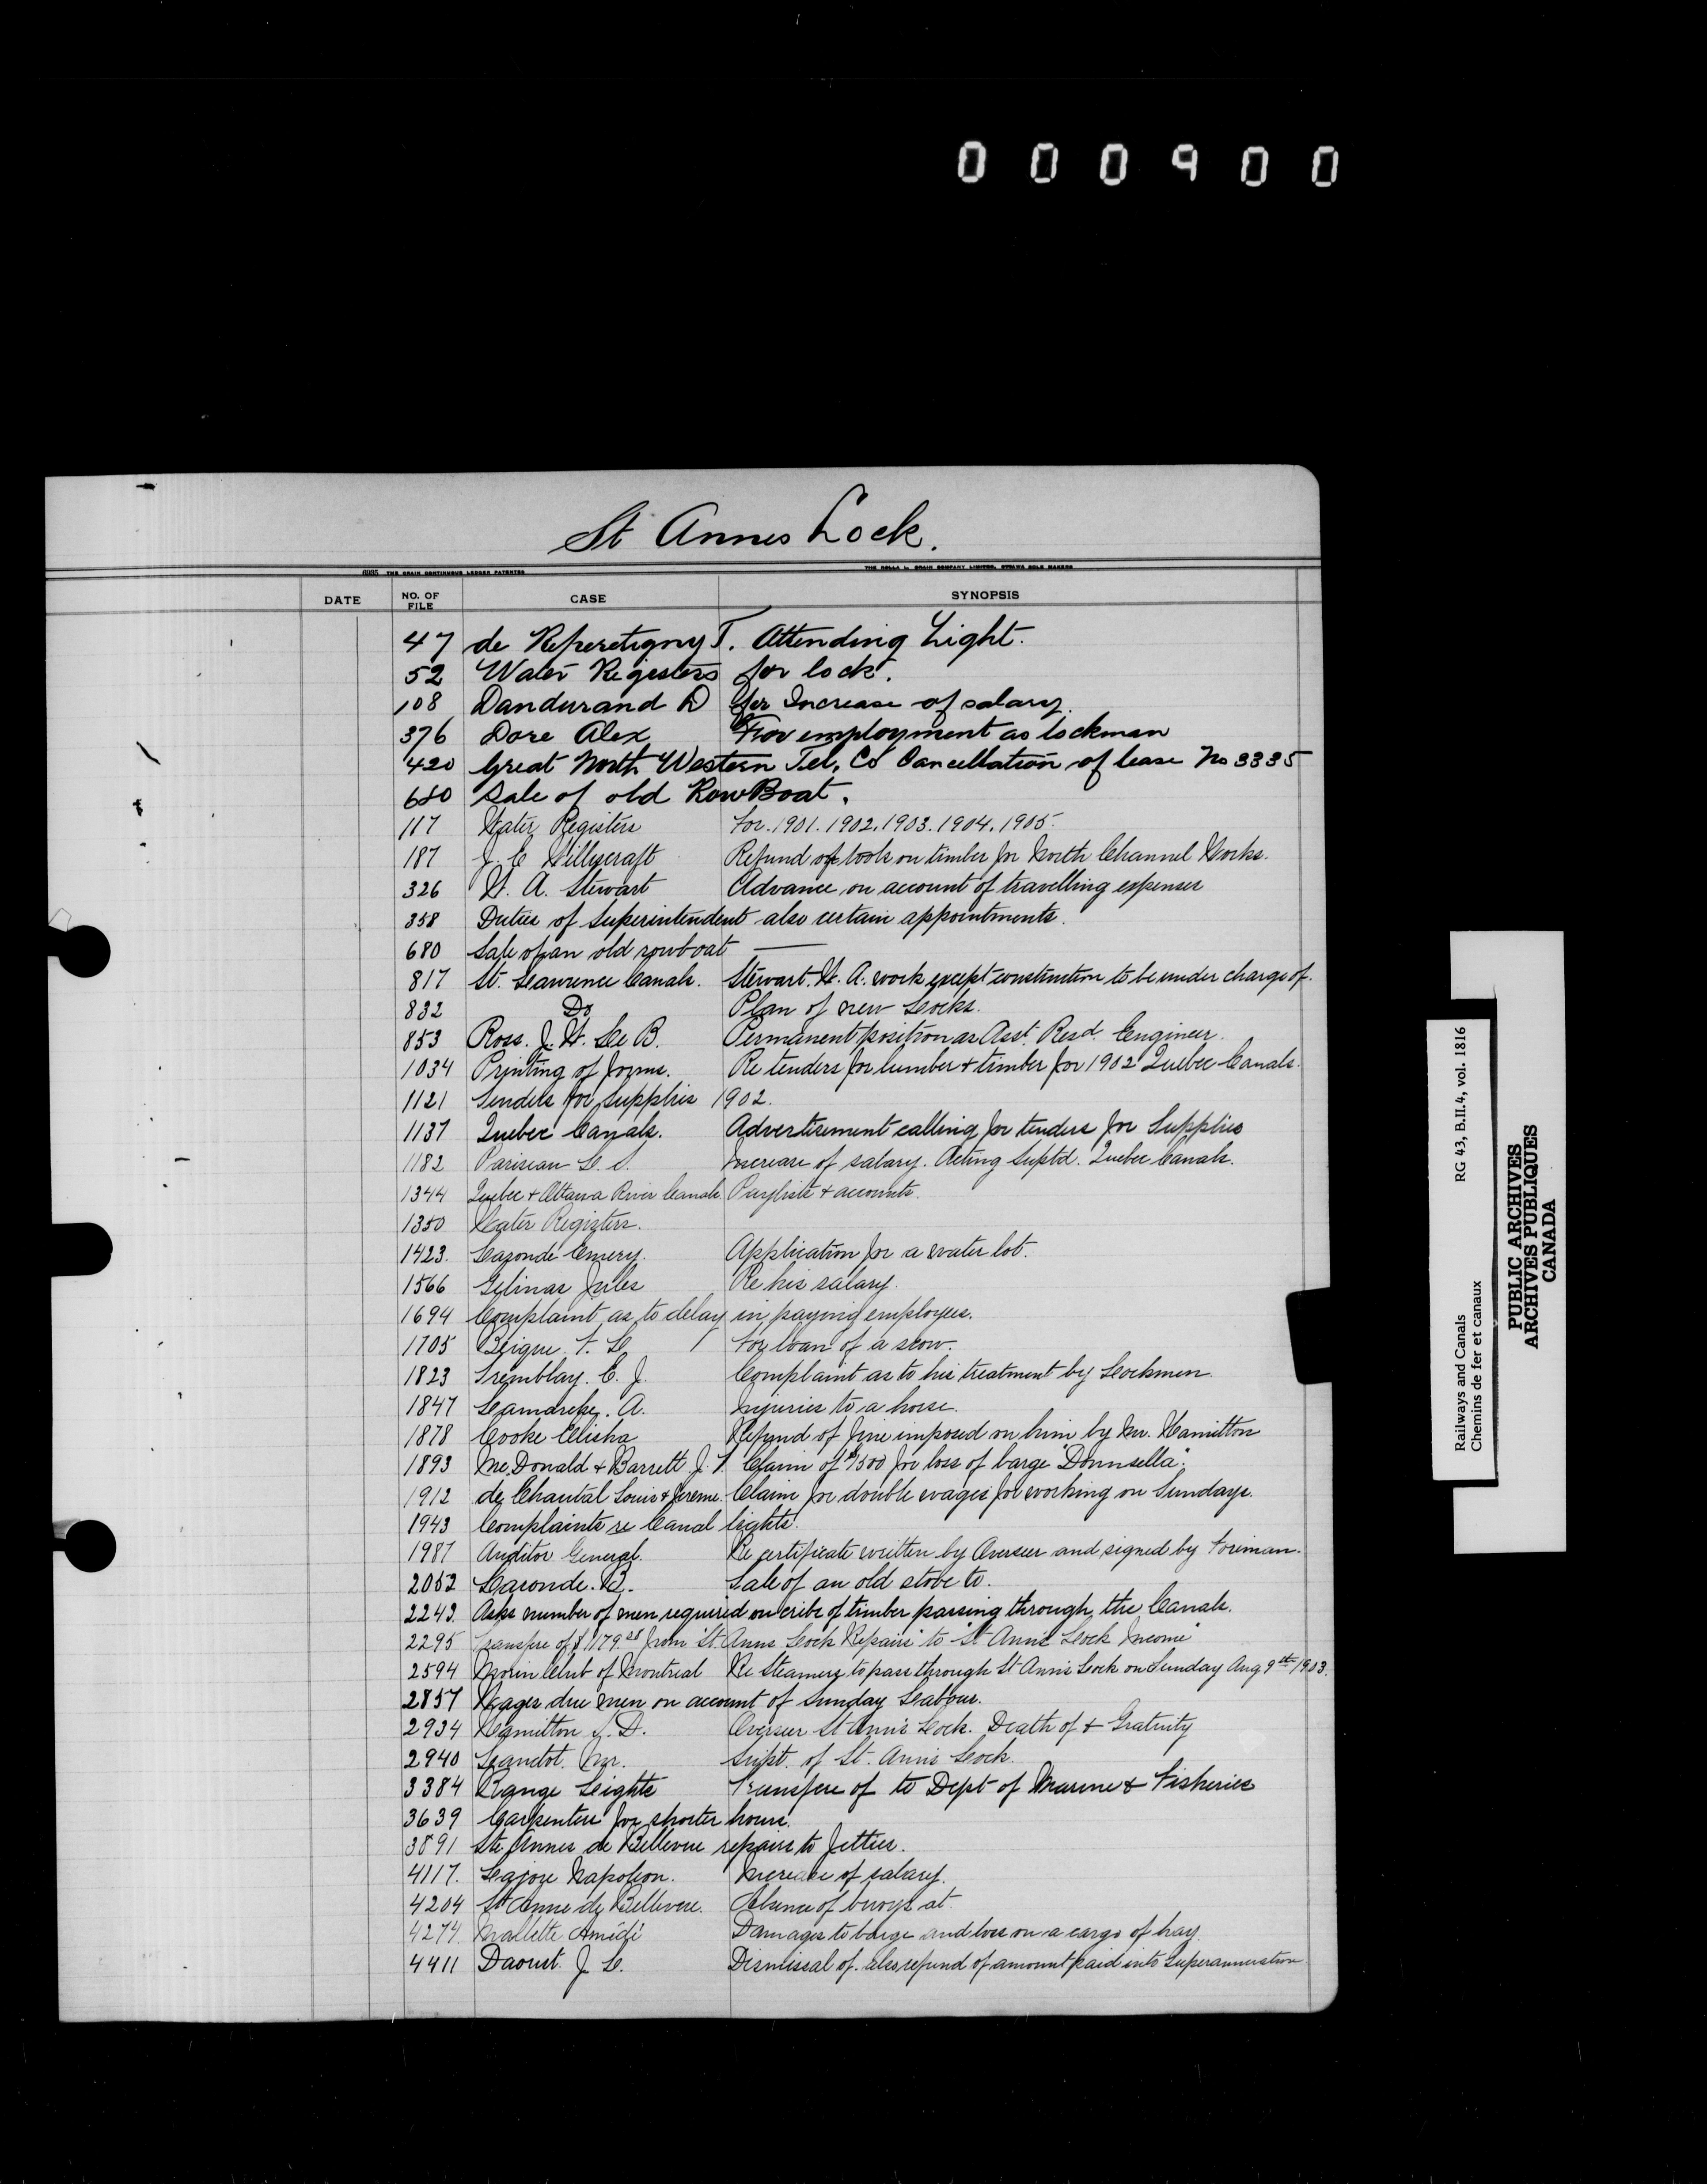 000900
St Annes Lock.
DATE NO. OF FILE CASE SYNOPSIS
47 de Repentigny T. Attending Light.
52 Water Registers for lock.
108 Dandurand D for Increase of salary.
376 Dore Alex For employment as lockman
420 Great North Western Tel. Co Cancellation of lease No 3335
680 Sale of old Row Boat.
117 Water Registers For. 1901. 1902. 1903. 1904. 1905.
187 J. C Refund of tools on timber for North Channel Works.
326 W. A. Stewart Advance on account of travelling expenses
358 Duties of Superintendent also certain appointments.
680 Sale of an old rowboat
817 St. Lawrence Canals. Stewart. W. A. work except construction to be under charge of.
832 Do Plan of new Locks.
853 Ross. J. W. Le B. Permanent position as Asst. Resd. Engineer.
1034 Printing of forms. Re tenders for lumber & timber for 1902 Quebec Canals.
1121 Tenders for supplies 1902.
1137 Quebec Canals. Advertisement calling for tenders for Supplies
1182 Pariseau Increase of salary. Acting Suptd. Quebec Canals.
1344 Quebec & Ottawa River Canals Paylists & accounts.
1350 Water Registers.
1423. Emery. Application for a water lot.
1566 Gelinas Jules Re his salary.
1694 Complaint as to delay in paying employees.
1705 Beique F. L For loan of a scow.
1823 Tremblay. E. J. Complaint as to his treatment by Lockmen.
1847 A. Injuries to a horse.
1878 Cooke Elisha Refund of fine imposed on him by Mr. Hamilton
1893 McDonald & Barrett J. Claim of $1500 for loss of barge "Donnsella".
1912 de Chantal Louis & Jereme. Claim for double wages for working on Sundays.
1943 Complaints re Canal lights.
1987 Auditor General. Re certificate written by Overseer and signed by Foreman.
2052 Laronde. B. Sale of an old stove to.
2243. Asks number of men required on cribs of timber passing through the Canals.
2295 Transfre of $1179.28 from "St. Anns Lock Repairs" to "St Anns Lock Income"
2594 Club of Montreal Re Steamers to pass through St Anns Lock on Sunday Aug 9th 1903.
2857 Wages due men on account of Sunday Labour.
2934 Hamilton Overseer St Anns Lock. Death of & Gratuity
2940 Mr. Supt. of St. Anns Lock.
3384 Range Lights Transfere of to Dept of Marine & Fisheries
3639 Carpenters for shorter hours.
3891 Ste Annes de Bellevue repairs to Jetties.
4117. Lajoie Napoleon. Increase of salary.
4204 St Anne de Bellevue. Absence of buoys at.
4274. Mallette Amédé Damages to barge and loss on a cargo of hay.
4411 Daoust. J. L. Dismissal of. also refund of amount paid into Superannuation
Railways and Canals RG 43, B.II.4, vol. 1816
Chemins de fer et canaux
PUBLIC ARCHIVES
ARCHIVES PUBLIQUES
CANADA